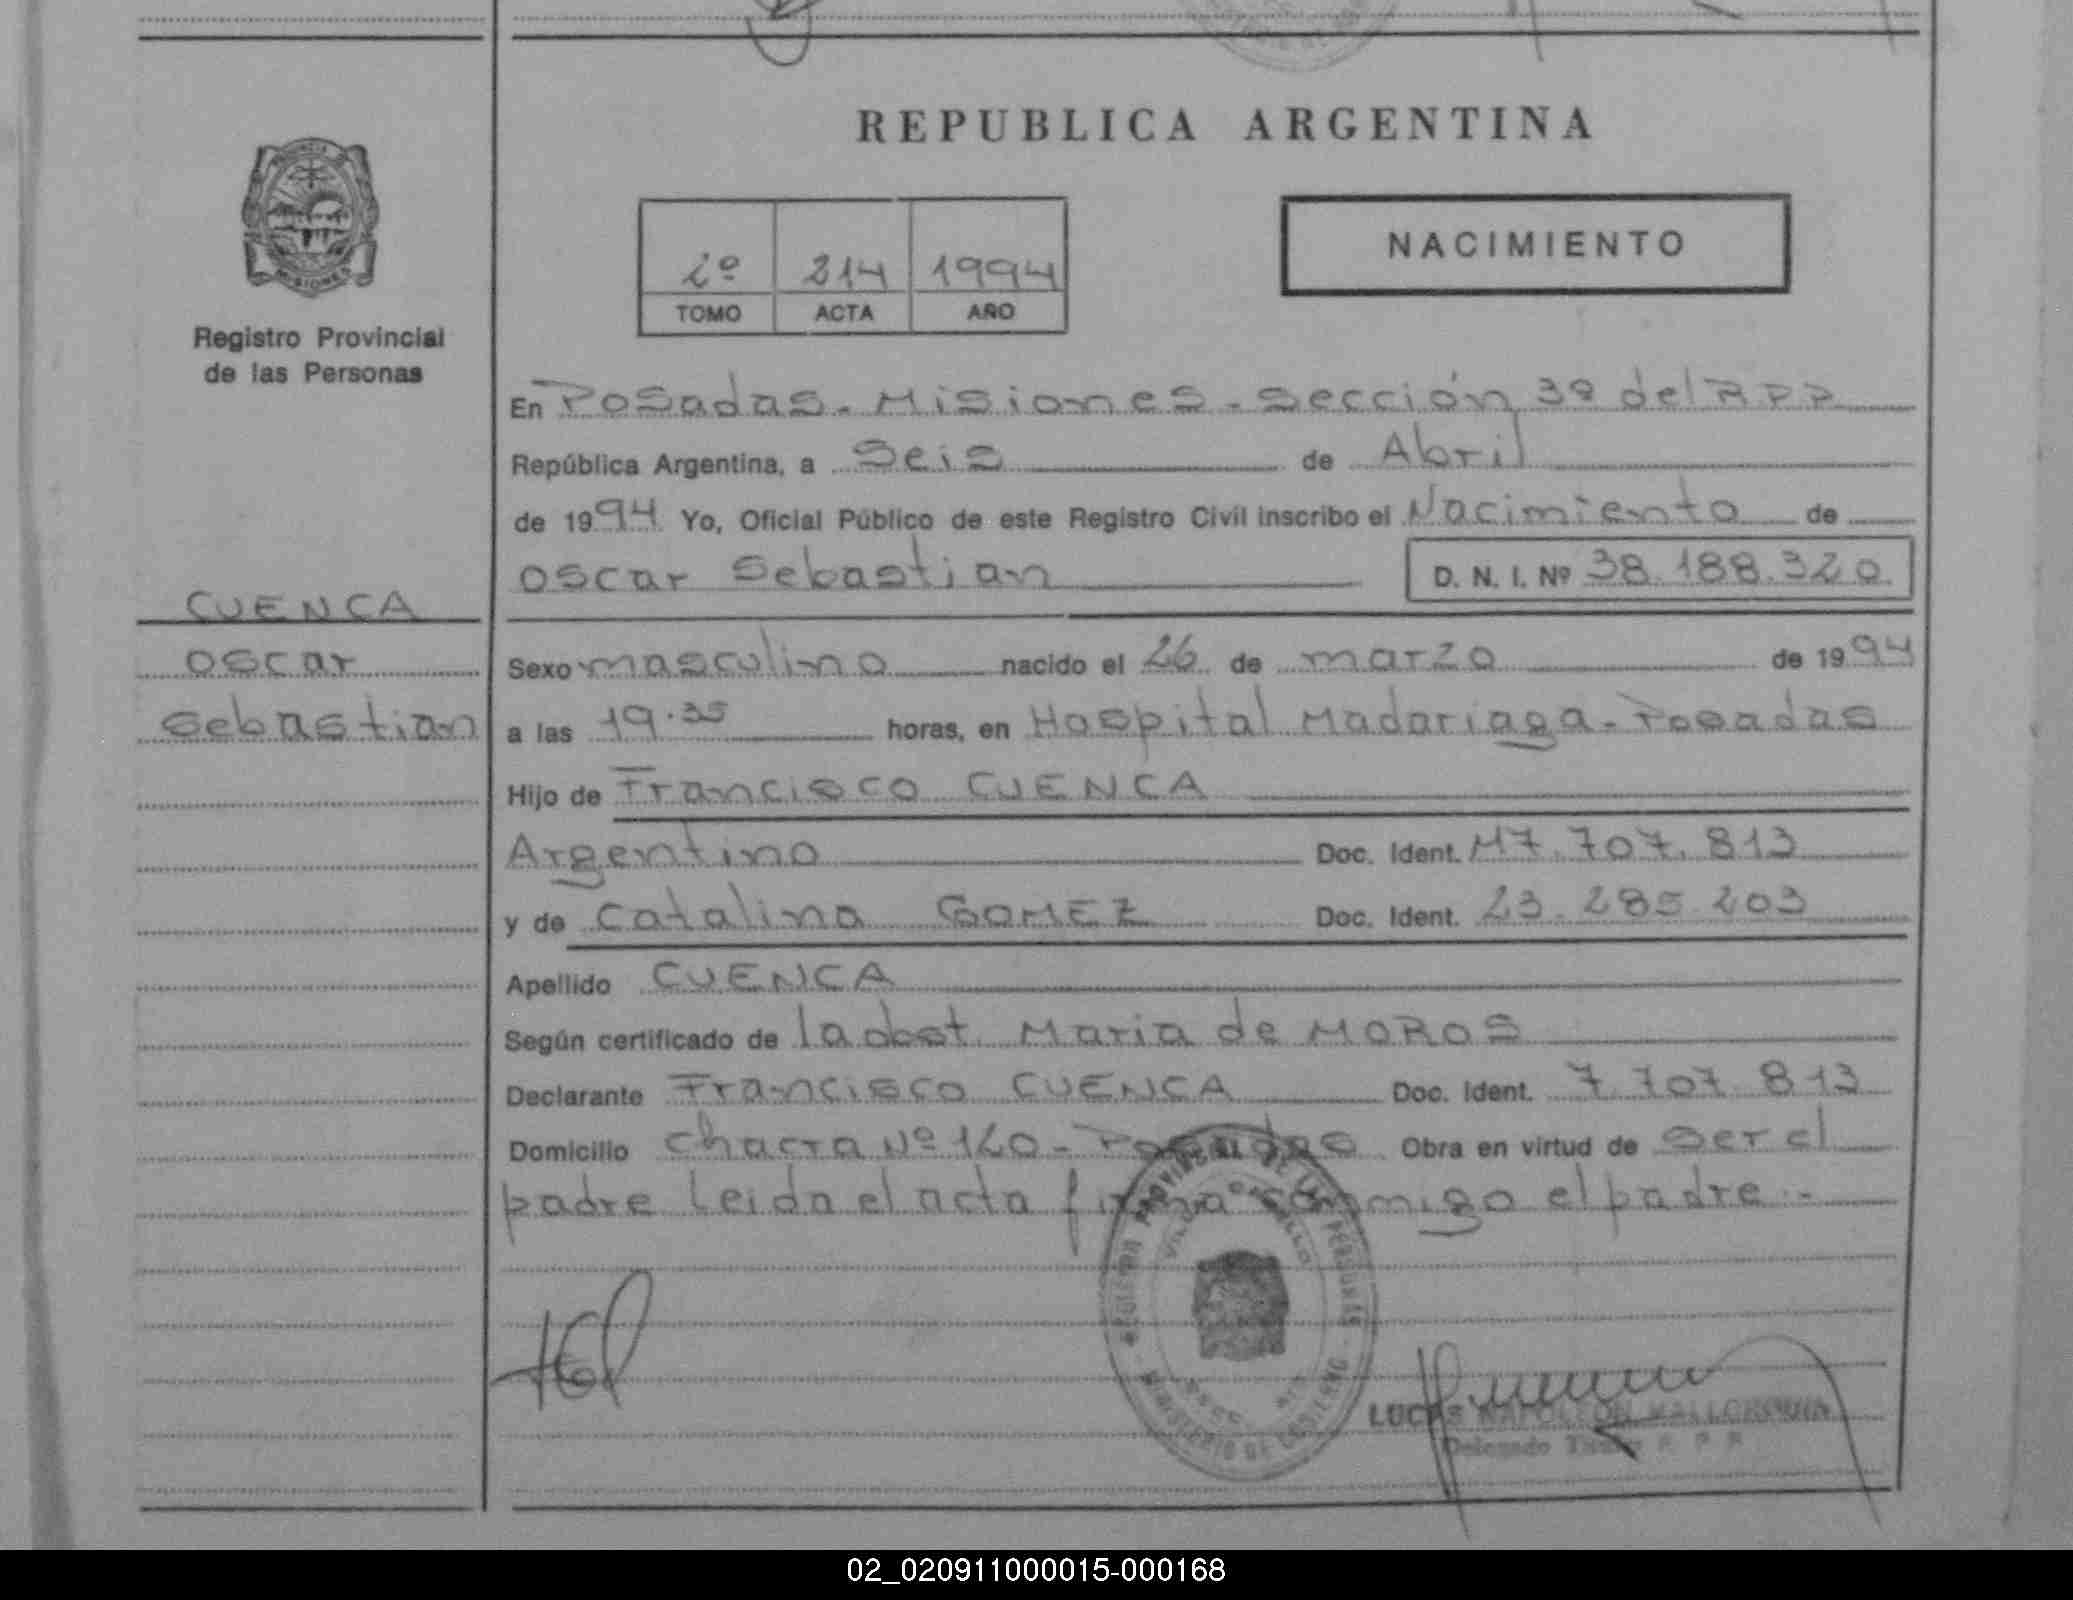 REPUBLICA ARGENTINA
NACIMIENTO
2º 214 1994
TOMO ACTA AÑO
PROVINCIA DE
MISIONES
Registro Provincial
de las Personas
En Posadas - Misiones - Sección 3º del RPP
República Argentina, a Seis de Abril
de 1994 Yo, Oficial Público de este Registro Civil inscribo el Nacimiento de
Oscar Sebastian D. N. I. Nº 38.188.320
CUENCA
Oscar
Sebastian
Sexo masculino nacido el 26 de marzo de 1994
a las 19.35 horas, en Hospital Madariaga - Posadas
Hijo de Francisco CUENCA
Argentino Doc. Ident. M7.707.813
y de Catalina GOMEZ Doc. Ident. 23.285.203
Apellido CUENCA
Según certificado de la obst. Maria de MOROS
Declarante Francisco CUENCA Doc. Ident. 7.707.813
Domicilio Chacra Nº 120 - Posadas Obra en virtud de ser el
padre Leida el acta firma conmigo el padre.-
PROVINCIAL DE LAS PERSONAS
MINISTERIO DE GOBIERNO
LUCAS NAPOLEON MALLORQUIN
Delegado Titular R. P. P.
02_020911000015-000168